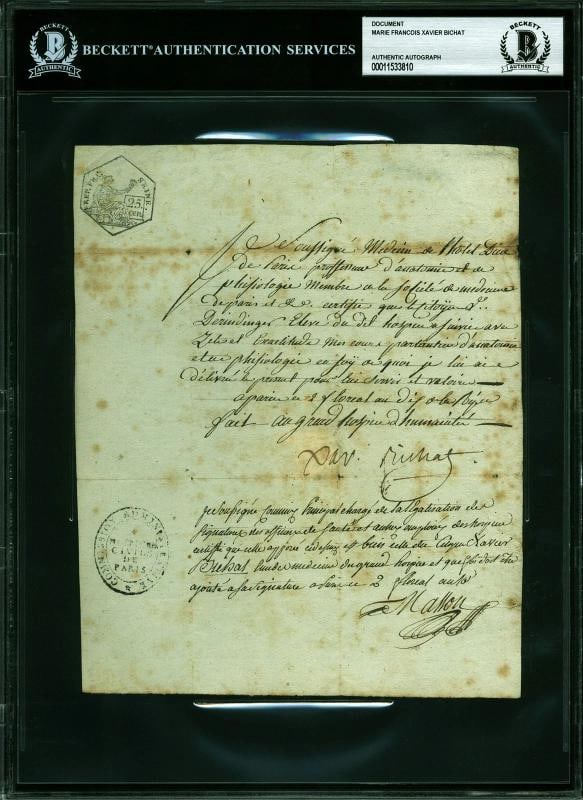 BECKETT
BAS
AUTHENTIC
BECKETT® AUTHENTICATION SERVICES
DOCUMENT
MARIE FRANCOIS XAVIER BICHAT
AUTHENTIC AUTOGRAPH
00011533810
BECKETT
AUTHENTIC
REP. FRA. SEINE.
25.
cen.
Je Soussigné Medecin de l'hotel Dieu
de Paris proffesseur d'anatomie et de
phisiologie Membre de la societé de medecine
de paris et &c. certifie que le citoyen
Derindinger Eleve du dit hospice a suivie avec
Zele et Exactitude mes cours d'anatomie
et de phisiologie en foy de quoi je lui ai
délivré le present pour lui servir et valoir
a paris ce 2 floreal an dix de la Rép.
fait au grand hospice d'humanité
Xav. Bichat
je soussigné chargé de la légalisation des
signatures des officiers de santé et autres employés des hospices
certifie que celle apposée cy dessus est bien celle du Citoyen Xavier
Bichat l'un des medecins du grand hospice et que foi doit être
ajoutée a sa signature a paris ce 2 floreal an
Masson
COMMISSION ADMINISTRATIVE
CIVILS
DE
PARIS